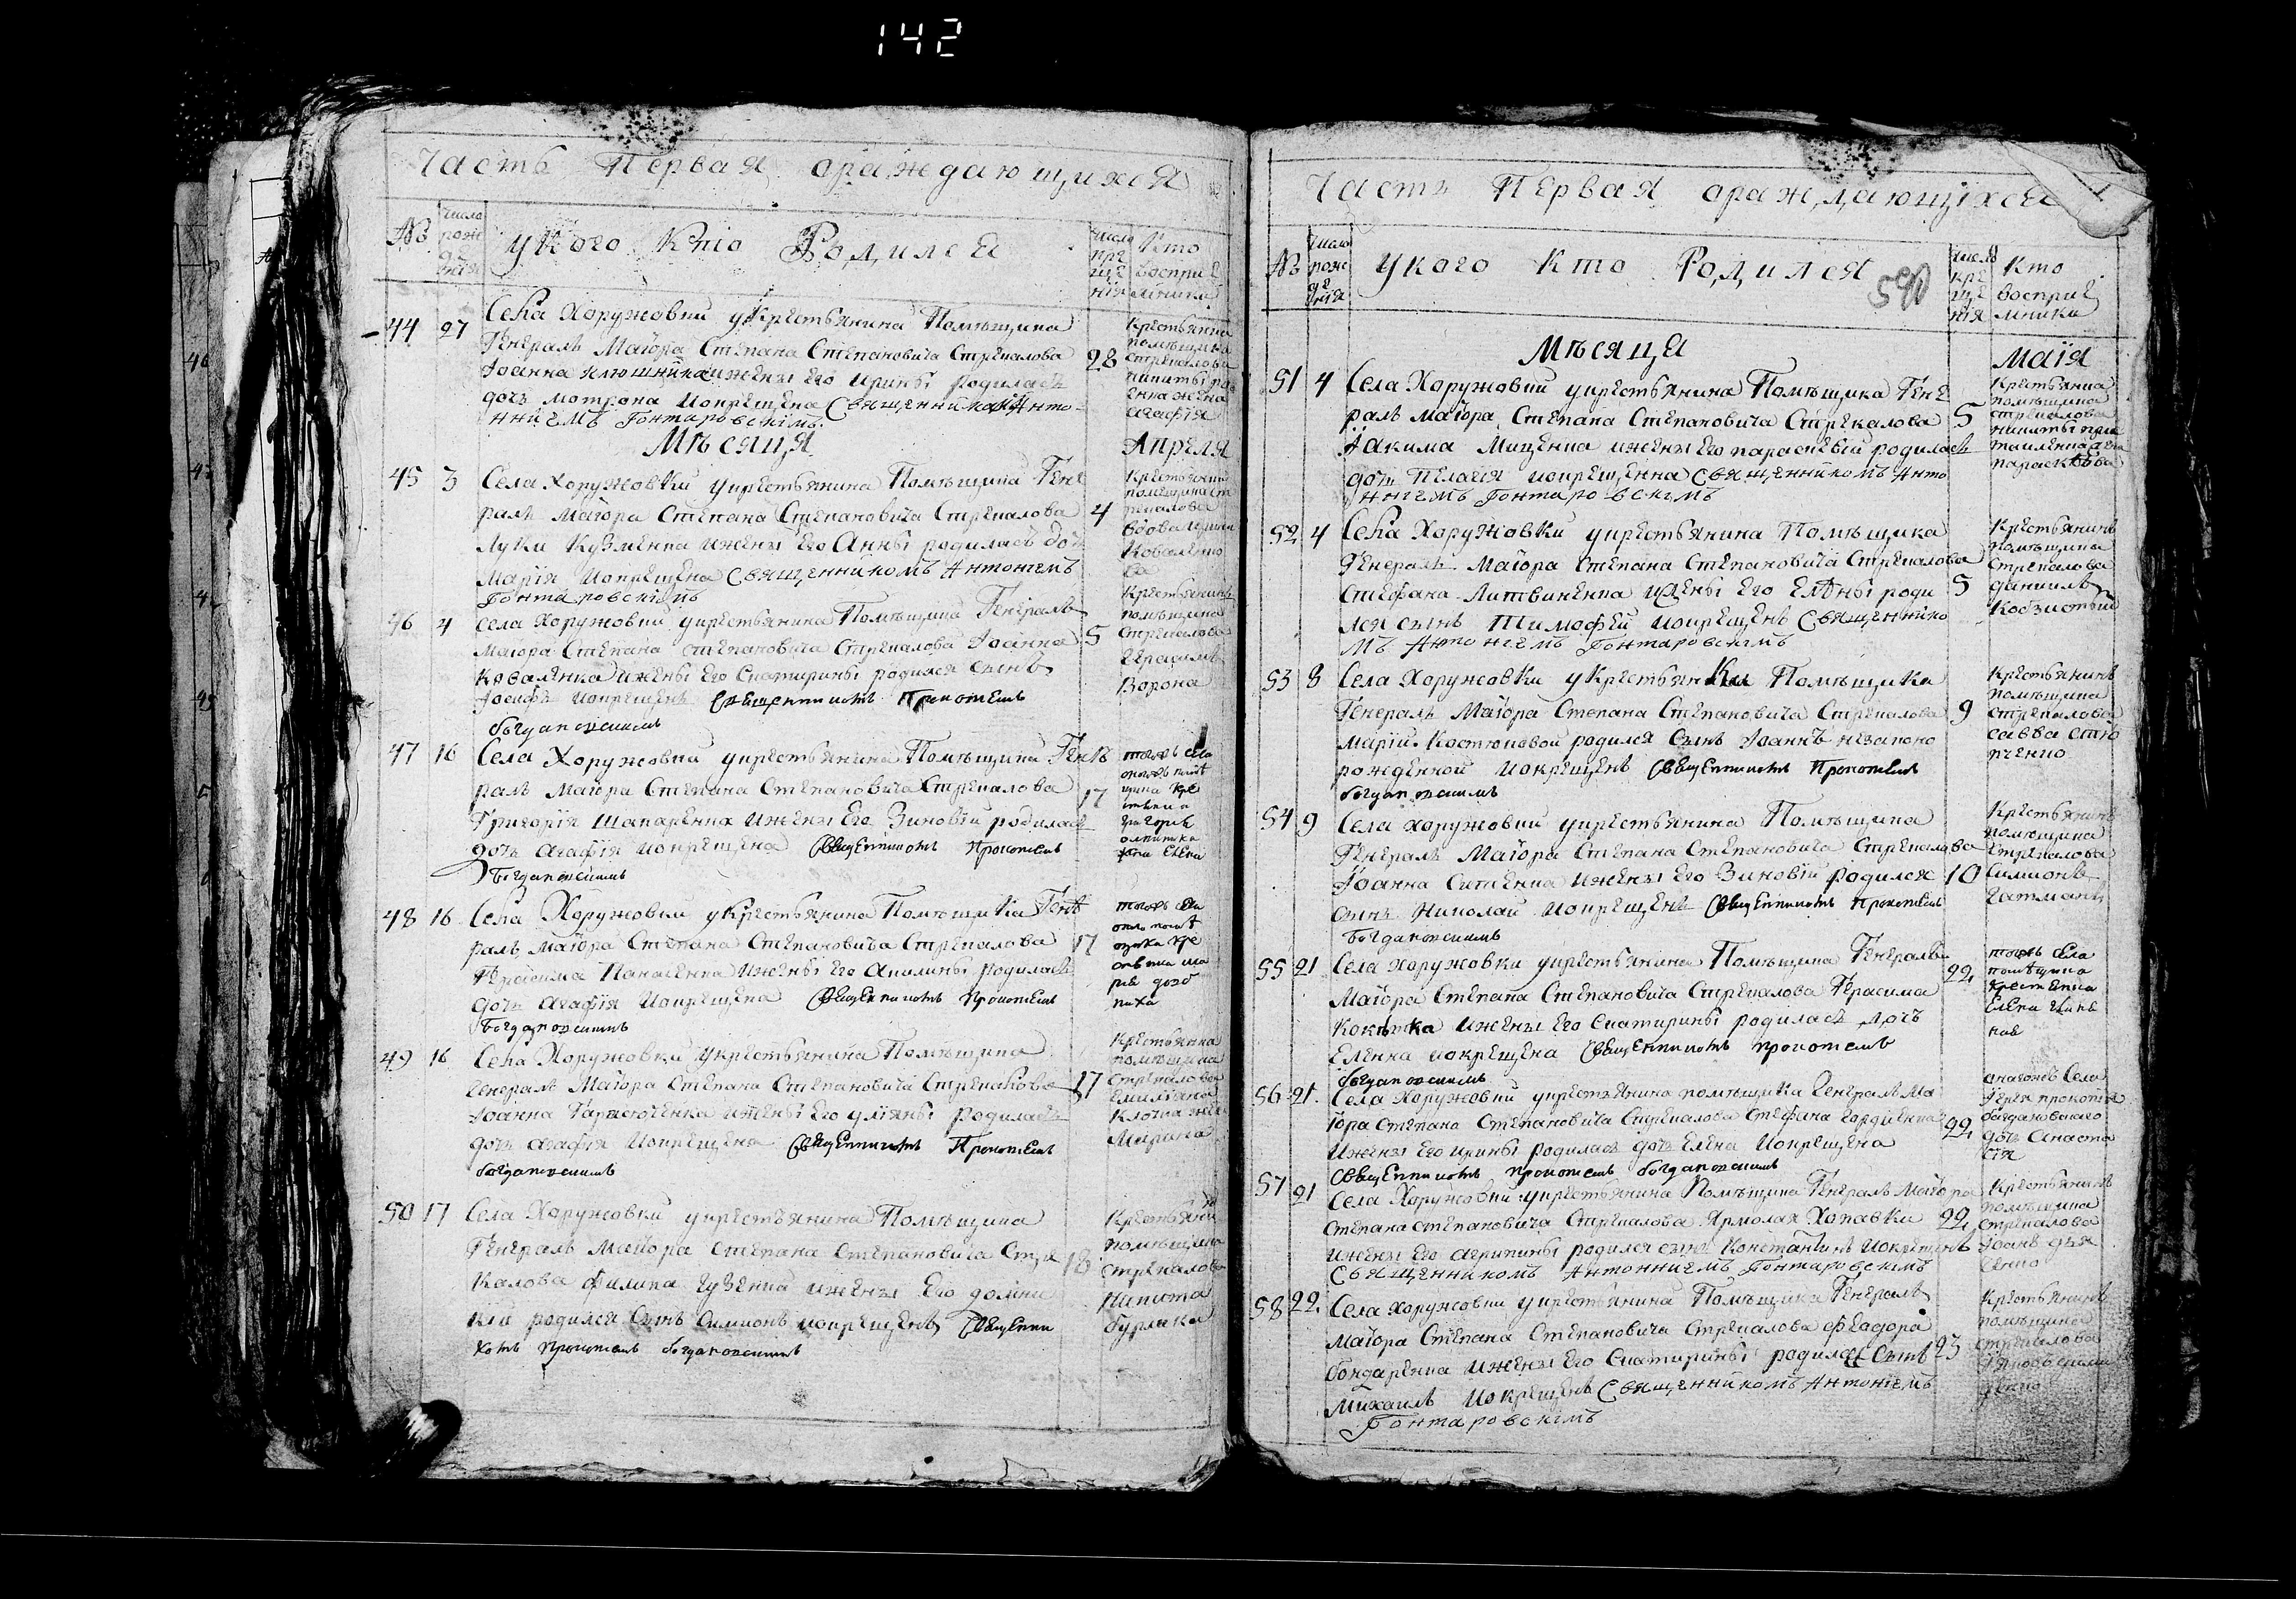 142
Часть Первая ораждающихся
№
число рож де нія
у кого Кто Родился
число кре ще нія
Кто восприе мники
44 27 Села Хоружовки у крестьянина Помѣщика
Генералъ Маіора Степана Степановича Стрекалова
Іоанна Клюшника ижены Его Ирины родиласъ
дочъ мотрона искрещена Священникомъ Анто
ниемъ Гонтаровскімъ.
28
помѣщика
Стрекалова
жена
агафія
Мѣсяца Апреля
45 3 Села Хоружовки укрестьянина Помѣщика Гене
ралъ Маіора Степана Степановича Стрекалова
Луки Кузменка ижены Его Анны родиласъ дочъ
Марія искрещена Священникомъ Антоніемъ
Гонтаровскімъ
4
вдова
46 4 села Хоружовки укрестьянина Помѣщика Генералъ
Маіора Степана степановича Стрекалова Іоанна
Коваленка ижены Его Екатирины родился сынъ
Іосифъ искрещенъ священникомъ Прокопіемъ
богдановскимъ
5
Крестьянинъ
помѣщика
Стрекалова
Герасимъ
Ворона
47 16 Села Хоружовки укрестьянина Помѣщика Гене
ралъ Маіора Степана Степановича Стрекалова
Григорія Шапаренка ижены Его Зиновіи родиласъ
дочъ агафія искрещена священникомъ Прокопіемъ
богдановскимъ
17
48 16 Села Хоружовки укрестьянина Помѣщика Гене
ралъ Маіора Степана Степановича Стрекалова
Герасима Панасенка ижены Его Акилины родиласъ
дочъ агафія искрещена священникомъ прокопіемъ
богдановскимъ
17
49 16 Села Хоружовки укрестьянина Помѣщика
Генералъ Маіора Степана Степановича Стрекалова
Іоанна Тарасюченка ижены Его Уліяны родиласъ
дочъ агафія искрещена священникомъ Прокопіемъ
богдановскимъ
17
помѣщика
Стрекалова
Марина
50 17 Села Хоружовки укрестьянина Помѣщика
Генералъ Маіора Степана Степановича Стре
калова Филипа Гузенка ижены Его домни
кіи родился Сынъ Симионъ искрещенъ священни
комъ прокопіемъ богдановскимъ
18
помѣщика
Стрекалова
Никита
бурлака
Часть Первая ораждающіхся
№
число рож де нія
у кого кто Родился
590
число кре ще нія
Кто восприе мники
Мѣсяца Маія
51 4 Села Хоружовки укрестьянина Помѣщика Гене
ралъ Маіора Степана Степановича Стрекалова
Іакима Миценка ижены Его параскевіи родиласъ
дочъ Пелагія искрещенна Священникомъ Анто
ниемъ Гонтаровскимъ
5
помѣщика
Стрекалова
52 4 Села Хоружовки укрестьянина Помѣщика
Генералъ Маіора Степана Степановичя Стрекалова
Стефана Литвиненка ижены Его Елены роди
лся сынъ Тимофей искрещенъ Священнико
мъ Антониемъ Гонтаровскімъ
5
Крестьянинъ
помѣщика
Стрекалова
даниилъ
53 8 Села Хоружовки укрестьянки Помѣщика
Генералъ Маіора Степана Степановича Стрекалова
Маріи Костюковой родился Сынъ Іоаннъ незаконо
рожденной искрещенъ священникомъ Прокопіемъ
богдановскимъ
9
Крестьянинъ
помѣщика
Стрекалова
савва
54 9 Села хоружовки укрестьянина Помѣщика
Генералъ Маіора Степана Степановича Стрекалова
Іоанна Ситенка ижены Его Зиновіи родился
сынъ Николай искрещенъ священникомъ прокопіемъ
богдановскимъ
10
Крестьянинъ
помѣщика
Стрекалова
Симионъ
Гатманъ
55 21 Села Хоружовки укрестьянина Помѣщика Генералъ
Маіора Степана Степановича Стрекалова Герасима
Кокътка ижены Его Екатирины родиласъ дочъ
Еленка искрещена священникомъ прокопіемъ
богдановскимъ
22
56 21. Села Хоружовки укрестьянина помѣщика Генерал Ма
іора Степана Степановича Стрекалова Стефана Гордиенка
ижены Его Ирины родиласъ дочъ Елена искрещена
священникомъ прокопіемъ богдановскимъ
22
Села
Іерея прокопія
богдановскаго
дочъ Анаста
сія
57 21 Села Хоружовки укрестьянина Помѣщика Генералъ Маіора
Степана степановича Стрекалова Ярмолая Хопавки
ижены Его агрипины родился сынъ Константинъ искрещенъ
Священникомъ Антонниемъ Гонтаровскімъ
22
Крестьянинъ
помѣщика
Стрекалова
58 22. Села Хоружовки укрестьянина Помѣщика Генералъ
Маіора Степана Степановича Стрекалова Феадора
бондаренка ижены Его Екатирины родился Сынъ
Михаилъ искрещенъ Священникомъ Антоніемъ
Гонтаровскімъ
23
Крестьянинъ
помѣщика
Стрекалова